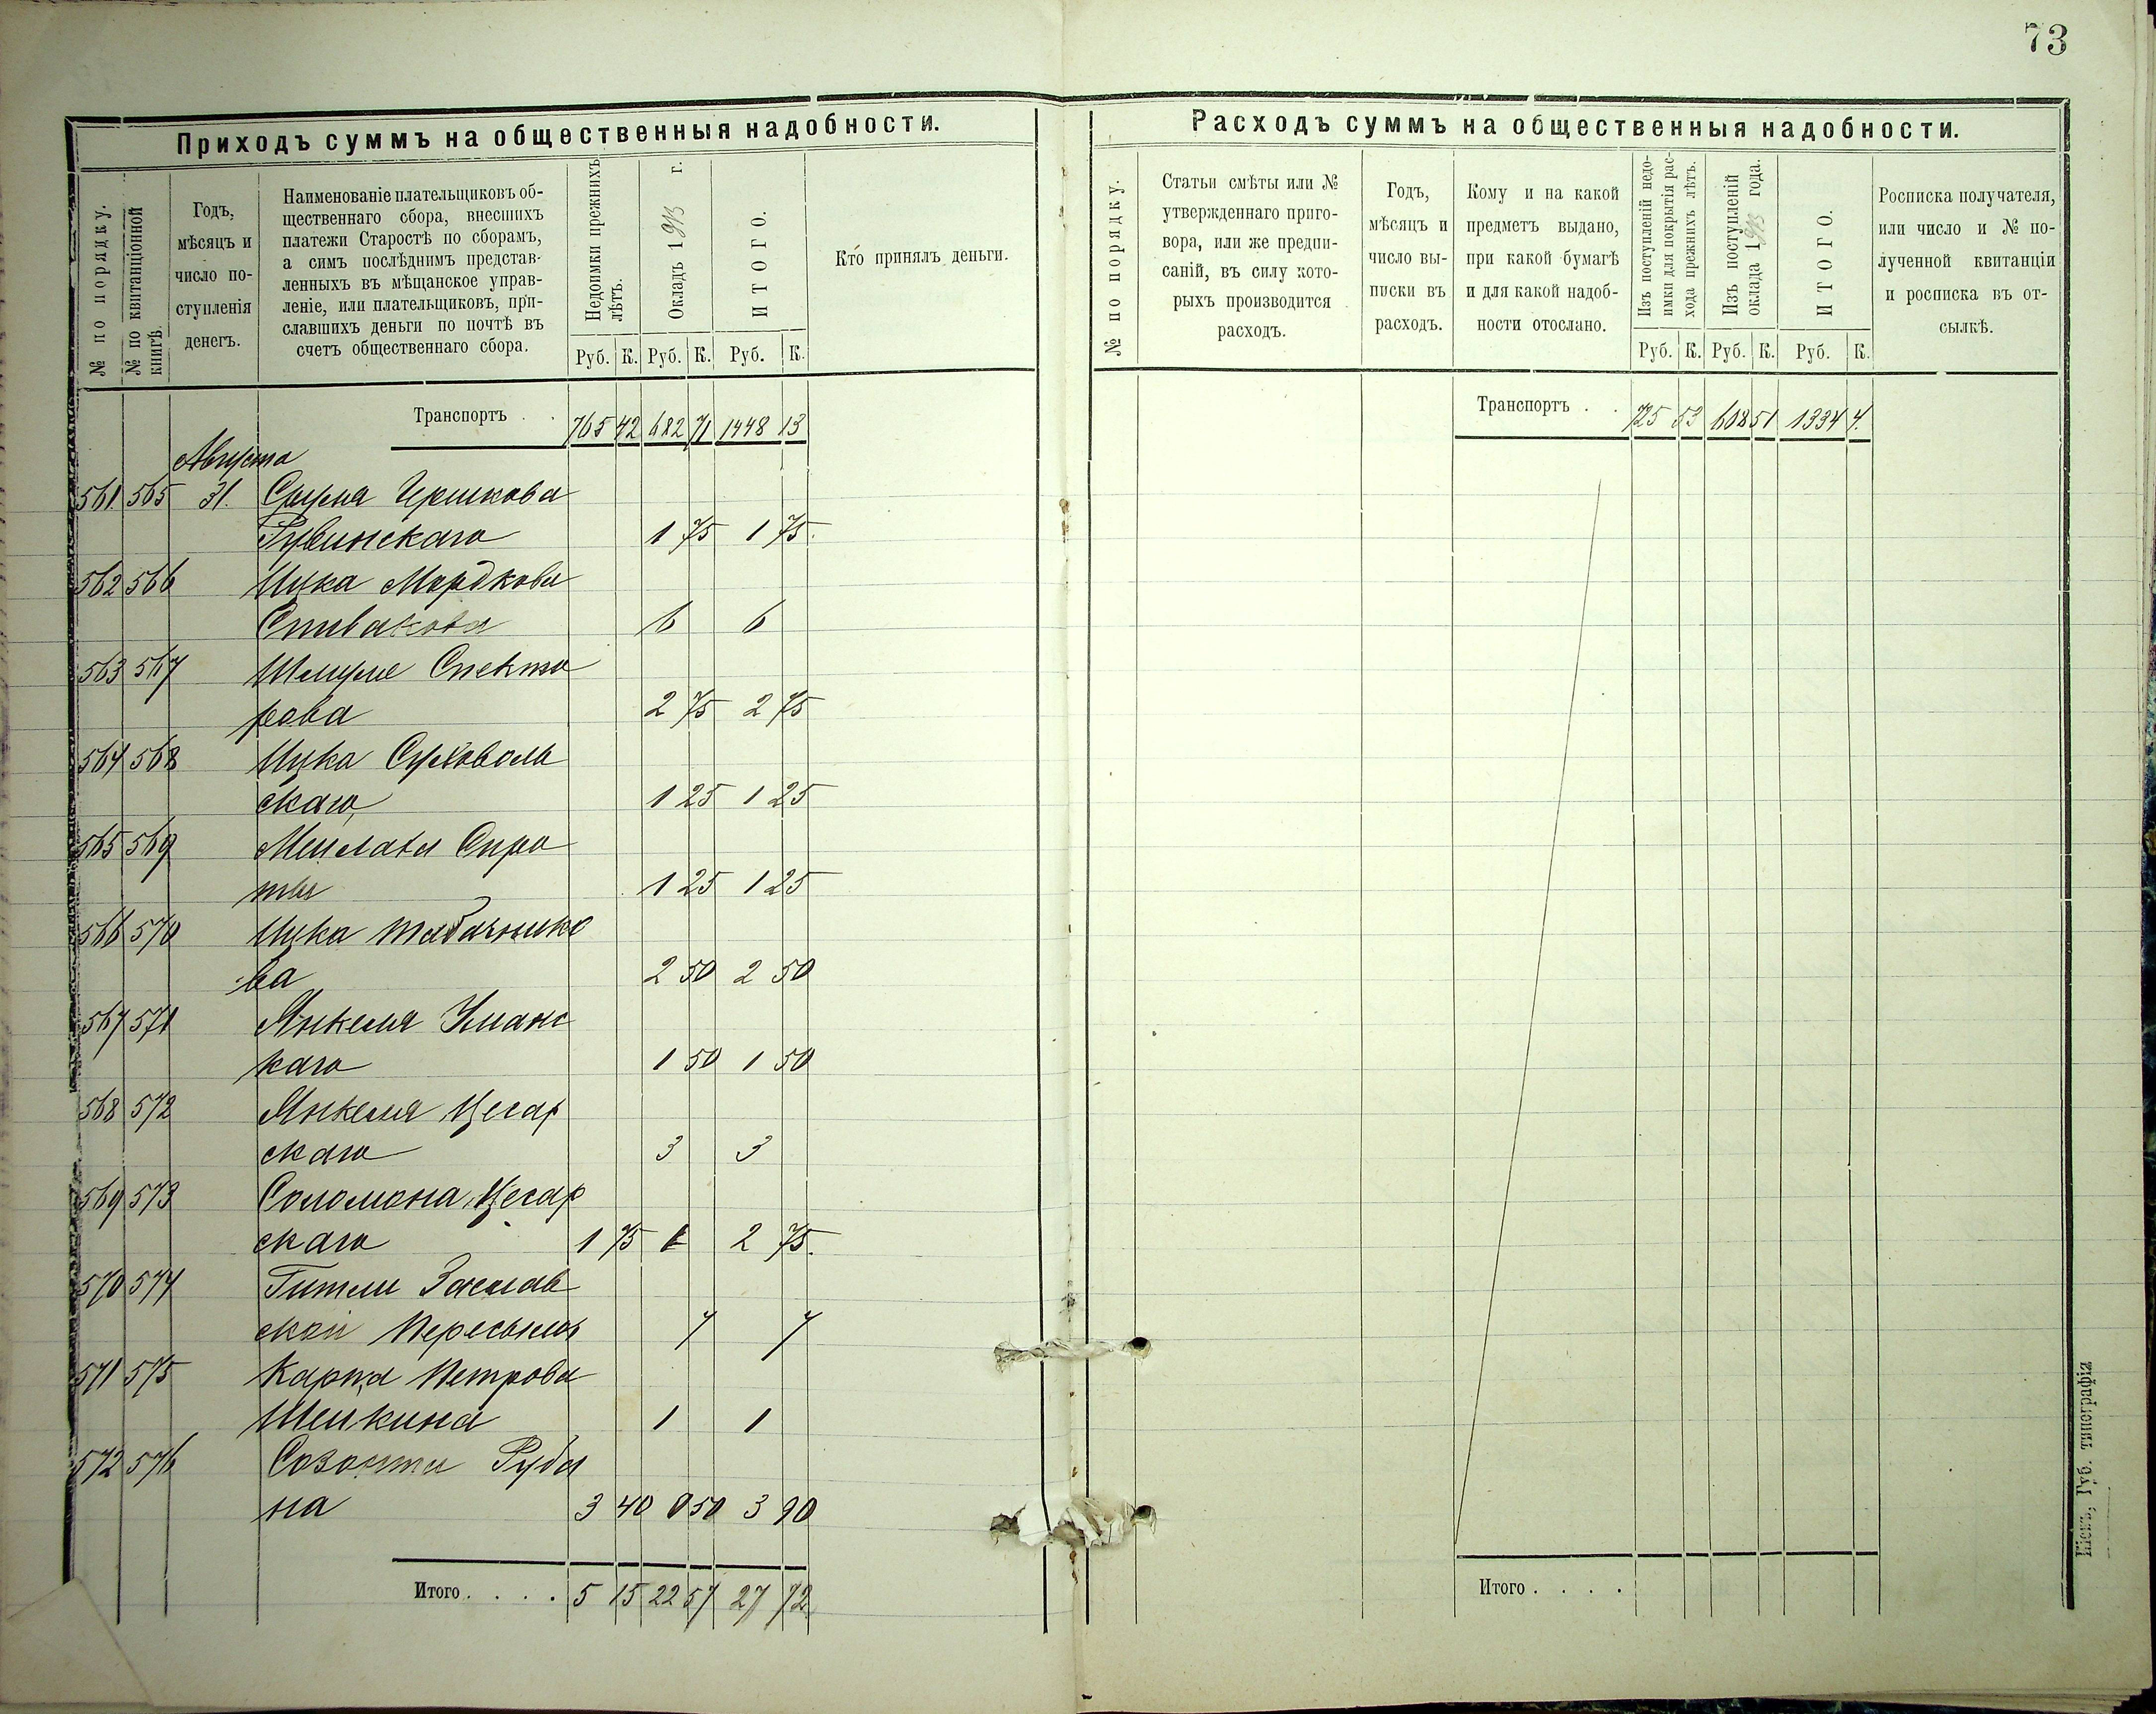 73
Приходъ суммъ на общественныя надобности.
№ по порядку.
№ по квитанціонной
книгѣ.
Годъ,
мѣсяцъ и
число по-
ступленія
денегъ.
Наименованіе плательщиковъ об-
щественнаго сбора, внесшихъ
платежи Старостѣ по сборамъ,
а симъ послѣднимъ представ-
ленныхъ въ мѣщанское управ-
леніе, или плательщиковъ, при-
славшихъ деньги по почтѣ въ
счетъ общественнаго сбора.
Недоимки прежнихъ
лѣтъ.
Окладъ 1913 г.
ИТОГО.
Руб. К. Руб. К. Руб. К.
Кто принялъ деньги.
Транспортъ . . 765 42 682 71 1448 13
Августа
561. 565 31. Срула Гершкова
Рувинскаго 1 75 1 75.
562 566 Ицка Мордкова
Спивакова 6 6
563 567 Шмуле Спекто
рова 2 75 2 75
564 568 Ицка Суховоль
скаго 1 25 1 25
565 569 Сиро
ты 1 25 1 25
566 570 Ицка Табачнико
ва 2 50 2 50
567 571 Янкеля Уманс
каго 1 50 1 50
568 572 Янкеля Цесар
скаго 3 3
569 573 Соломона Цесар
скаго 1 75 1 2 75.
570 574 Гитли Заслав
ской 7 7
571 575 Карпа Петрова
Шейкина 1 1
572 576 Созонта Руба
на 3 40 0 50 3 90
Итого . . . . 5 15 22 57 27 72
Расходъ суммъ на общественныя надобности.
№ по порядку.
Статьи смѣты или №
утвержденнаго приго-
вора, или же предпи-
саній, въ силу кото-
рыхъ производится
расходъ.
Годъ,
мѣсяцъ и
число вы-
писки въ
расходъ.
Кому и на какой
предметъ выдано,
при какой бумагѣ
и для какой надоб-
ности отослано.
Изъ поступленій недо-
имки для покрытія рас-
хода прежнихъ лѣтъ.
Изъ поступленій
оклада 1913 года.
ИТОГО.
Руб. К. Руб. К. Руб. К.
Росписка получателя,
или число и № по-
лученной квитанціи
и росписка въ от-
сылкѣ.
Транспортъ . . 725 53 608 51 1334 4.
Итого . . . .
Кіевъ, Губ. типографія